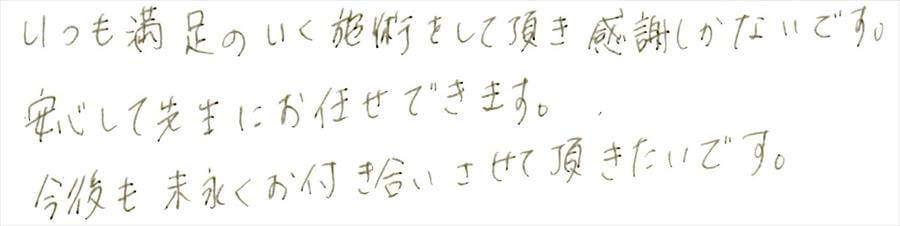 いつも満足のいく施術をして頂き感謝しかないです。
安心して先生にお任せできます。
今後も末永くお付き合いさせて頂きたいです。